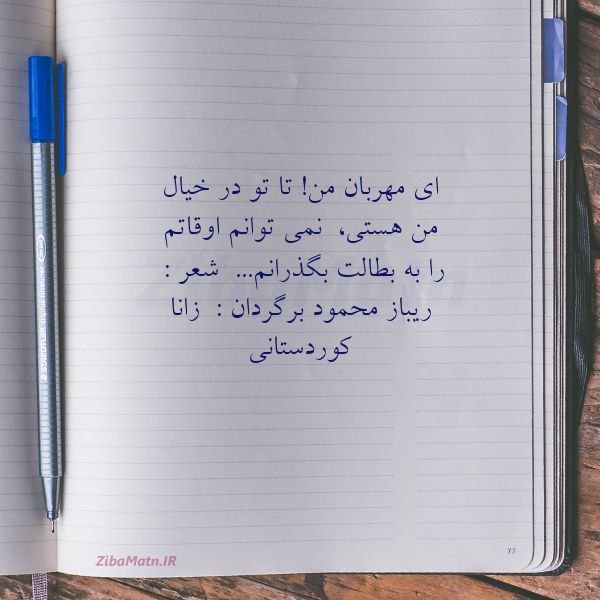 ای مهربان من! تا تو در خیال
من هستی، نمی توانم اوقاتم
را به بطالت بگذرانم... شعر :
ریباز محمود برگردان : زانا
کوردستانی
ZibaMatn.IR
77